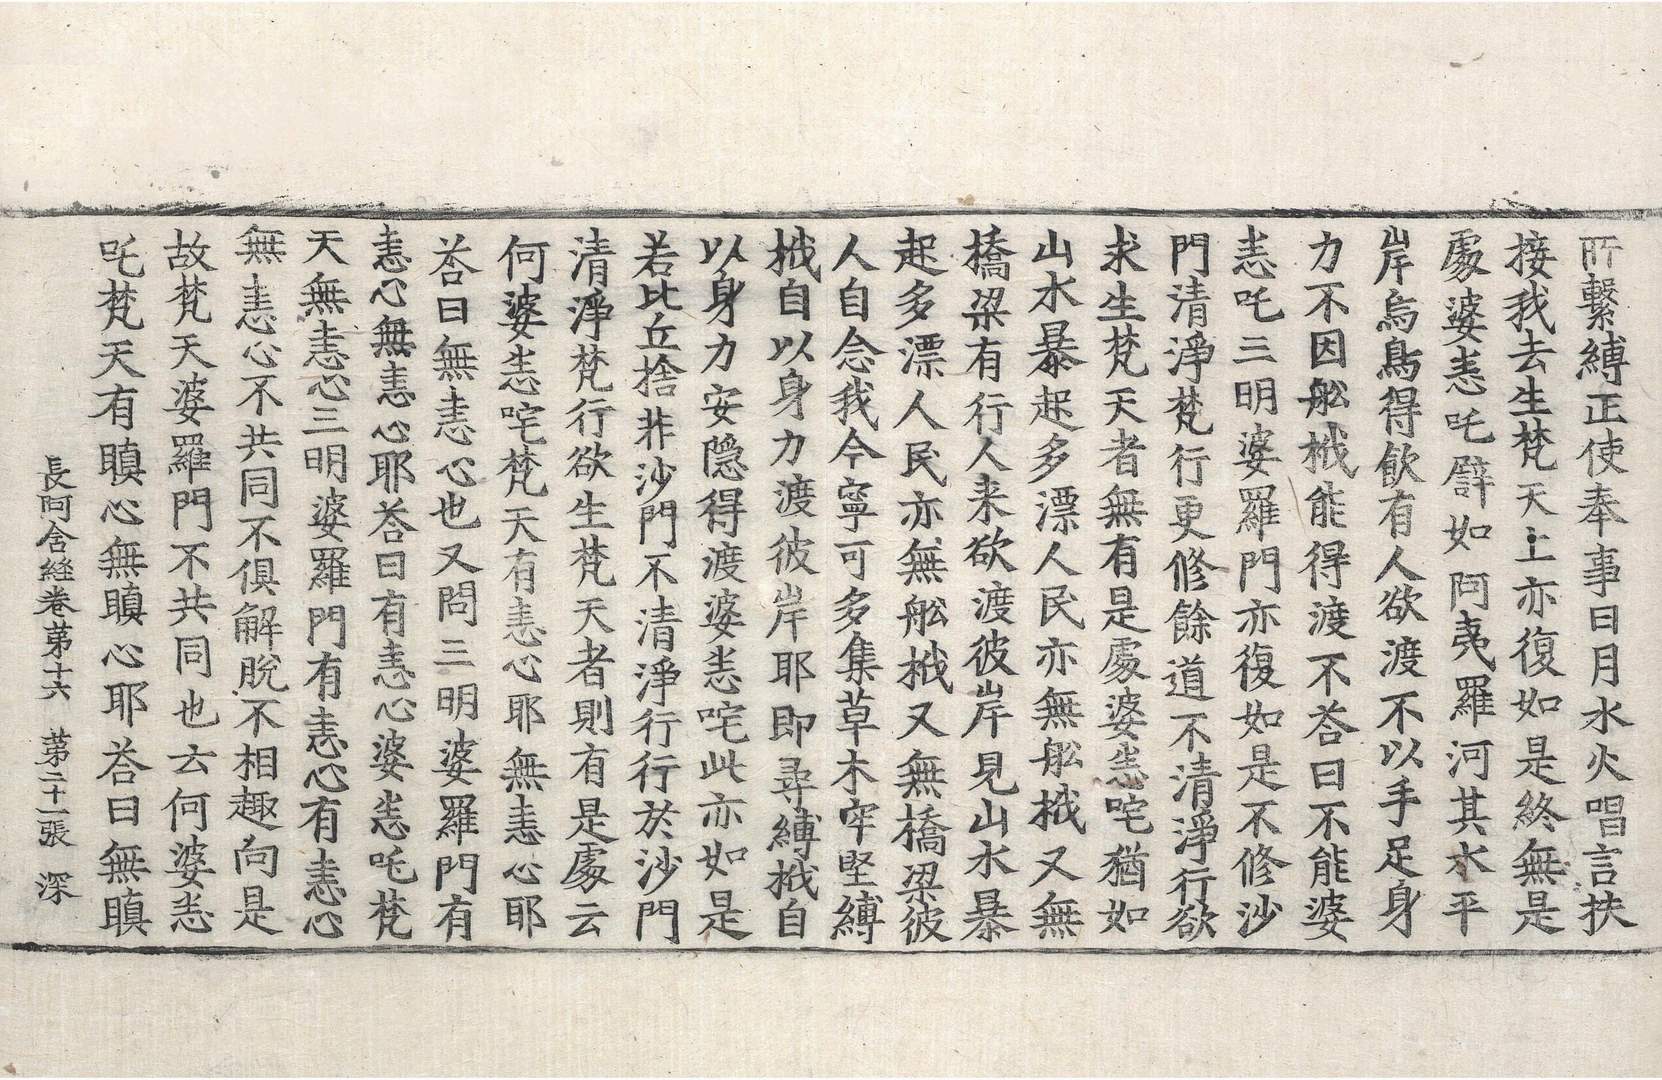 所繫縛正使奉事日月水火唱言扶
接我去生梵天上亦復如是終無是
處婆悉吒譬如阿夷羅河其水平
岸烏鳥得飲有人欲渡不以手足身
力不因船栰能得渡不荅曰不能婆
悉吒三明婆羅門亦復如是不修沙
門清淨梵行更修餘道不清淨行欲
求生梵天者無有是處婆悉咤猶如
山水暴起多漂人民亦無舩栰又無
橋梁有行人来欲渡彼岸見山水暴
起多漂人民亦無舩栰又無橋梁彼
人自念我今寧可多集草木牢堅縛
栰自以身力渡彼岸耶即尋縛栰自
以身力安隱得渡婆悉咤此亦如是
若比丘捨非沙門不清淨行行於沙門
清淨梵行欲生梵天者則有是處云
何婆悉咤梵天有恚心耶無恚心耶
荅曰無恚心也又問三明婆羅門有
恚心無恚心耶荅曰有恚心婆悉吒梵
天無恚心三明婆羅門有恚心有恚心
無恚心不共同不俱解脫不相趣向是
故梵天婆羅門不共同也云何婆悉
吒梵天有瞋心無瞋心耶荅曰無瞋
長阿含經卷第十六　第二十一張　深